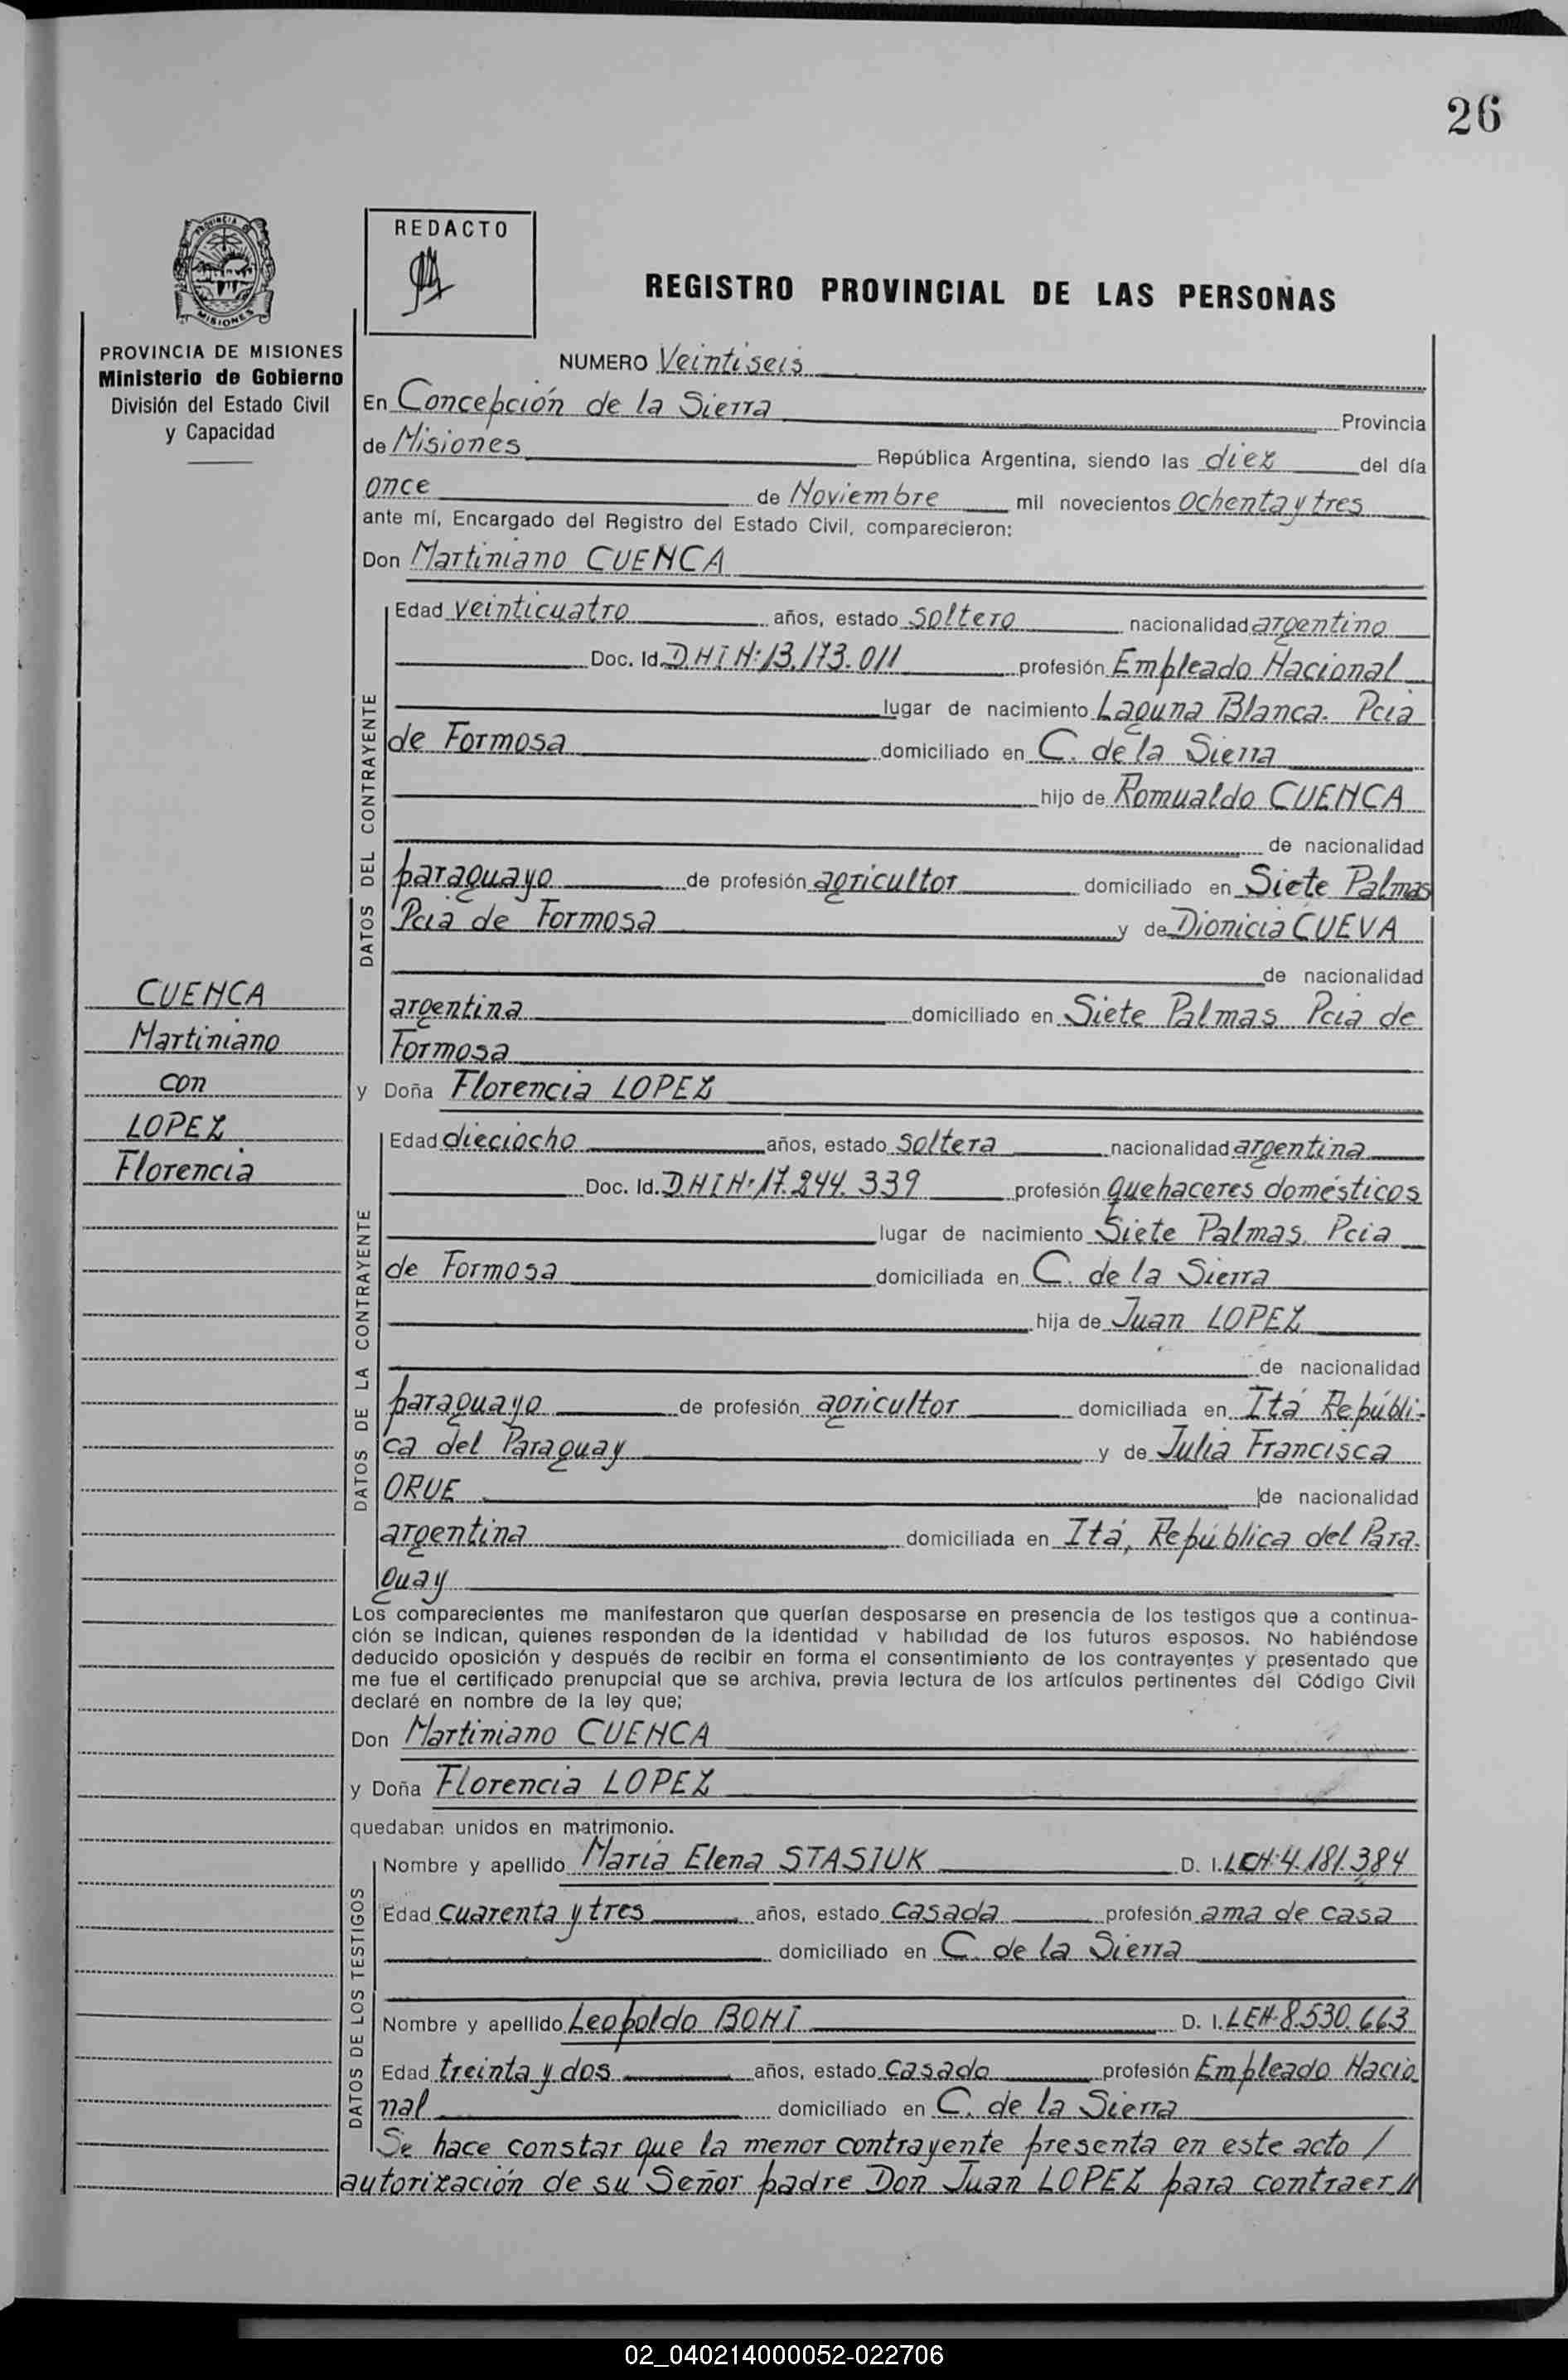 26
REDACTO
PROVINCIA DE MISIONES
REGISTRO PROVINCIAL DE LAS PERSONAS
PROVINCIA DE MISIONES
Ministerio de Gobierno
División del Estado Civil
y Capacidad
NUMERO Veintiseis
En Concepción de la Sierra Provincia
de Misiones República Argentina, siendo las diez del día
once de Noviembre mil novecientos ochenta y tres
ante mí, Encargado del Registro del Estado Civil, comparecieron:
Don Martiniano CUENCA
DATOS DEL CONTRAYENTE
Edad veinticuatro años, estado soltero nacionalidad argentino
Doc. Id. D.N.I N: 13.173.011 profesión Empleado Nacional
lugar de nacimiento Laguna Blanca. Pcia
de Formosa domiciliado en C. de la Sierra
hijo de Romualdo CUENCA
de nacionalidad
paraguayo de profesión agricultor domiciliado en Siete Palmas
Pcia de Formosa y de Dionicia CUEVA
de nacionalidad
argentina domiciliado en Siete Palmas Pcia de
Formosa
CUENCA
Martiniano
con
LOPEZ
Florencia
y Doña Florencia LOPEZ
DATOS DE LA CONTRAYENTE
Edad dieciocho años, estado soltera nacionalidad argentina
Doc. Id. D.N.I N: 17.244.339 profesión quehaceres domésticos
lugar de nacimiento Siete Palmas, Pcia
de Formosa domiciliada en C. de la Sierra
hija de Juan LOPEZ
de nacionalidad
paraguayo de profesión agricultor domiciliada en Itá Repúbli-
ca del Paraguay y de Julia Francisca
ORUE de nacionalidad
argentina domiciliada en Itá, República del Para-
guay
Los comparecientes me manifestaron que querían desposarse en presencia de los testigos que a continua-
ción se indican, quienes responden de la identidad y habilidad de los futuros esposos. No habiéndose
deducido oposición y después de recibir en forma el consentimiento de los contrayentes y presentado que
me fue el certificado prenupcial que se archiva, previa lectura de los artículos pertinentes del Código Civil
declaré en nombre de la ley que;
Don Martiniano CUENCA
y Doña Florencia LOPEZ
quedaban unidos en matrimonio.
DATOS DE LOS TESTIGOS
Nombre y apellido Maria Elena STASIUK D. I. LCN. 4.181.384
Edad cuarenta y tres años, estado casada profesión ama de casa
domiciliado en C. de la Sierra
Nombre y apellido Leopoldo BONI D. I. LEN. 8.530.663
Edad treinta y dos años, estado casado profesión Empleado Nacio
nal domiciliado en C. de la Sierra
Se hace constar que la menor contrayente presenta en este acto /
autorización de su Señor padre Don Juan LOPEZ para contraer //
02_040214000052-022706